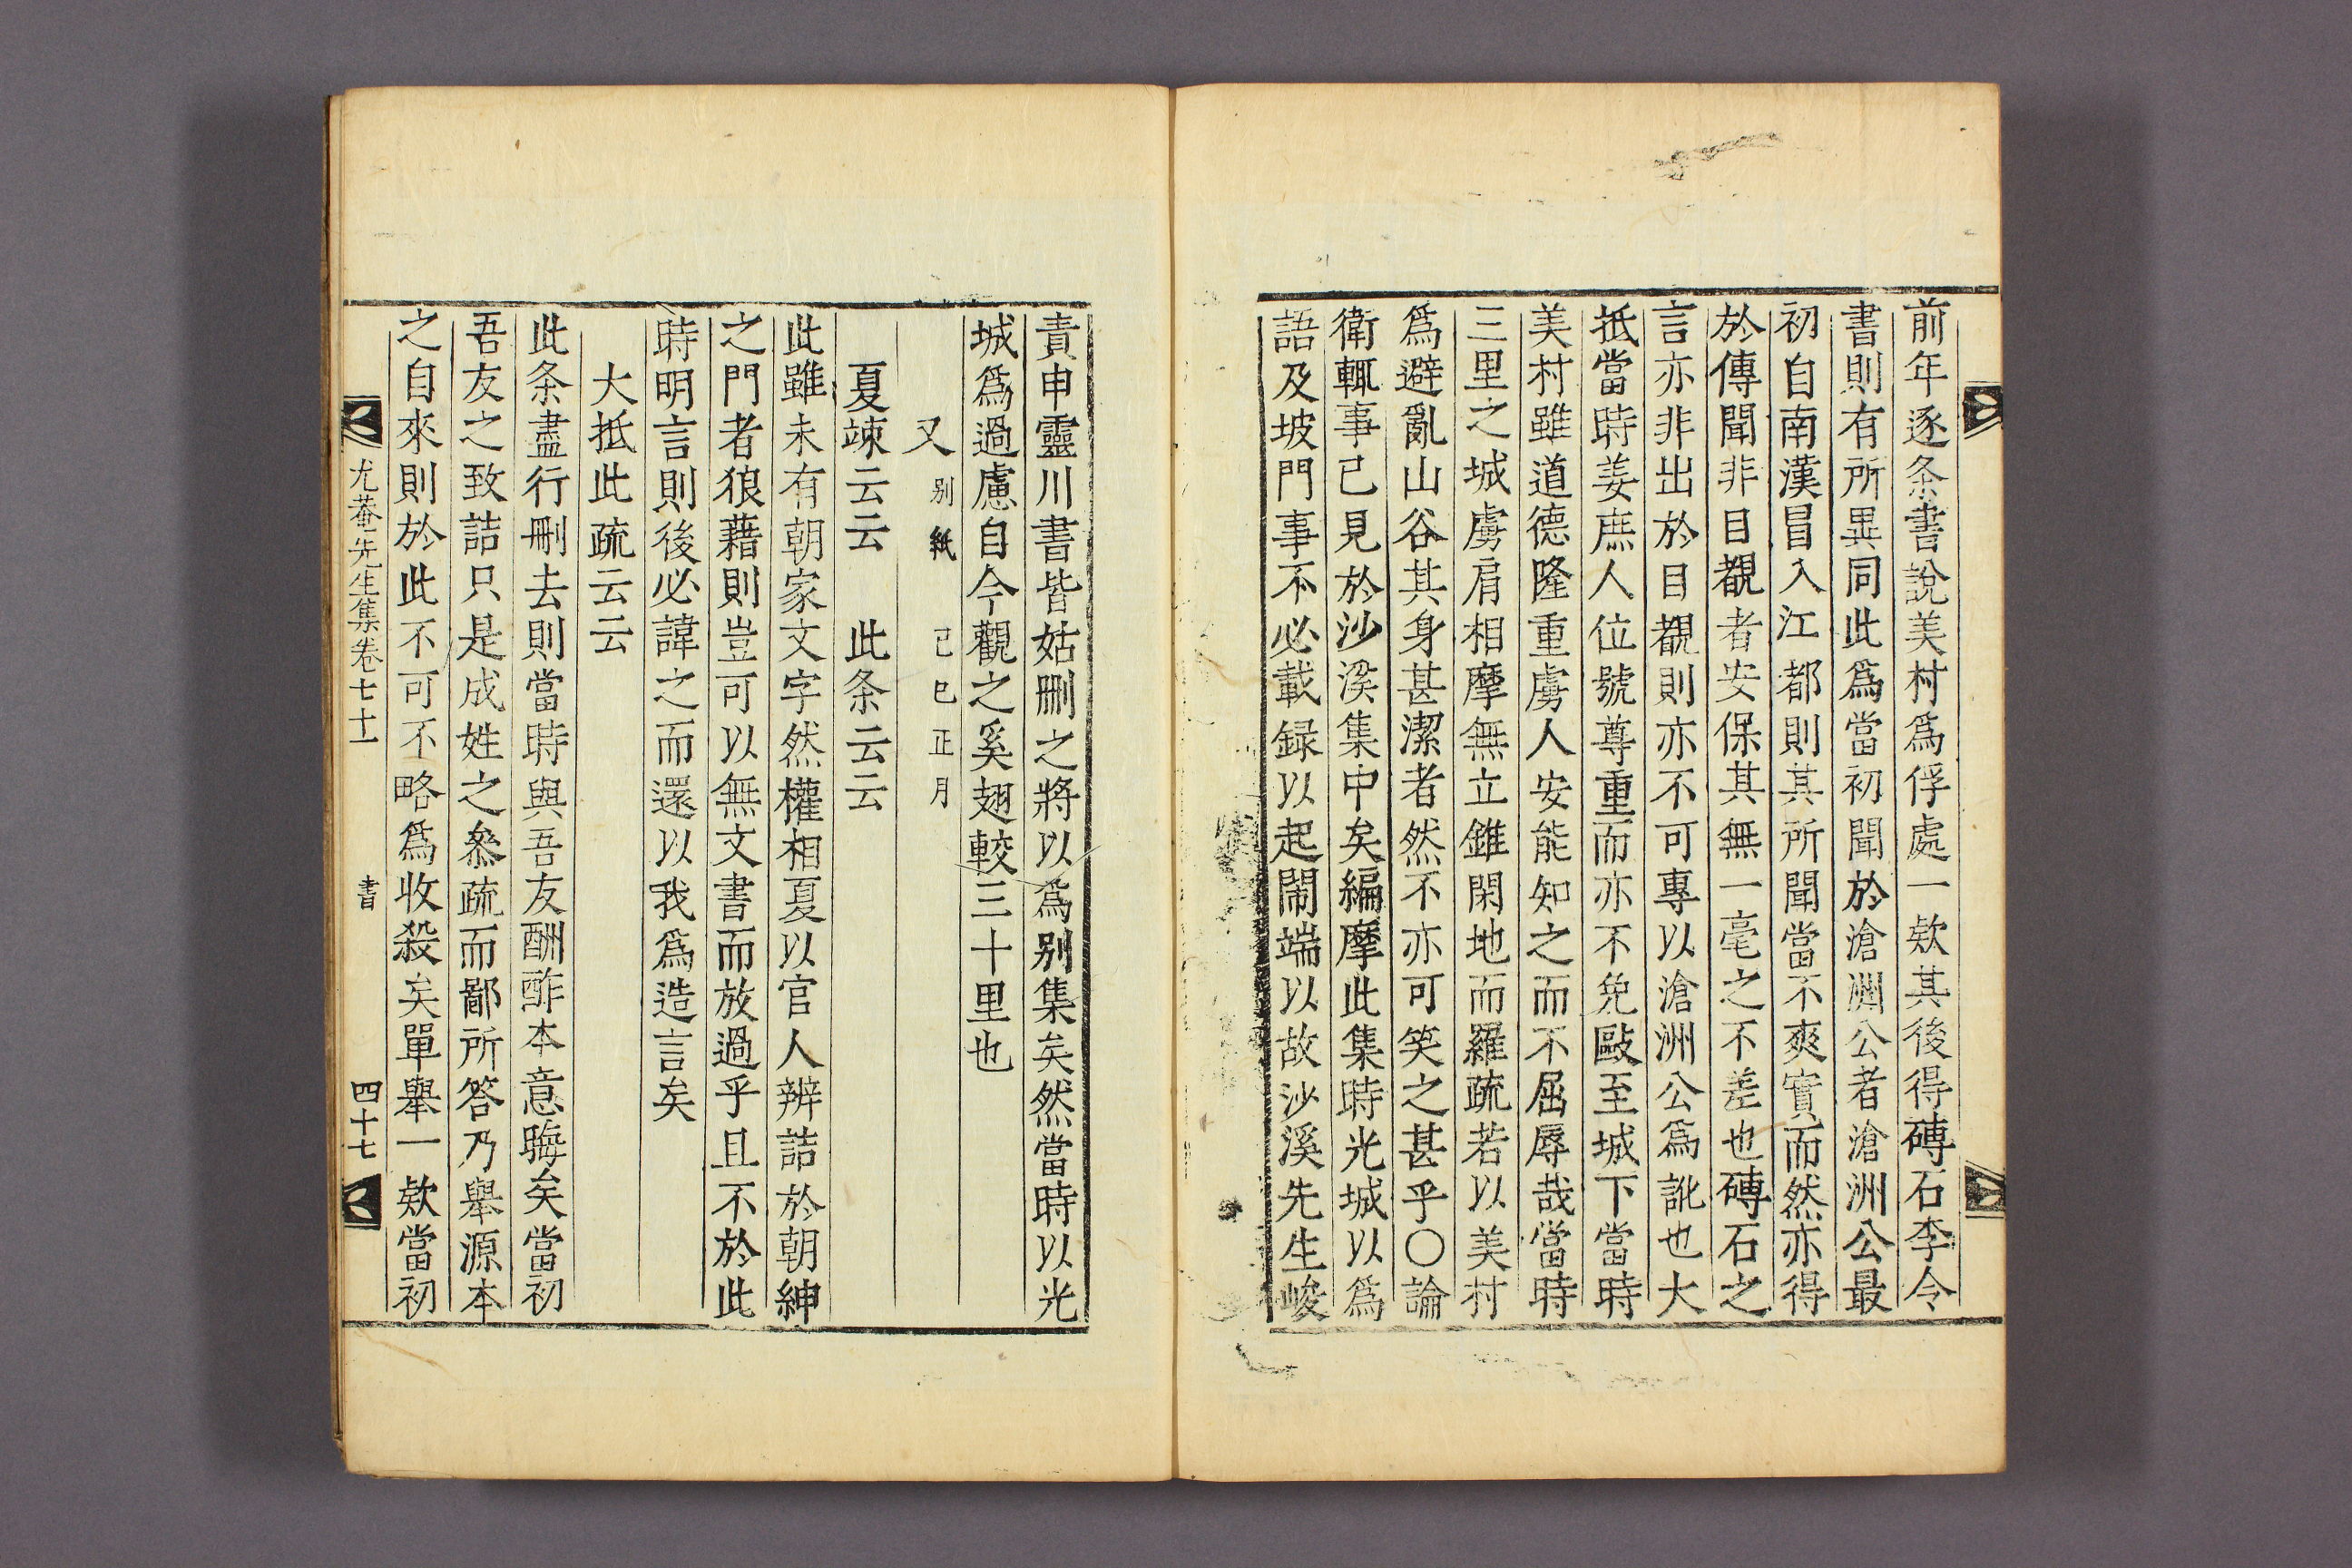 前年逐条書說美村爲俘處一欵其後得磚石李令
書則有所異同此爲當初聞於滄洲公者滄洲公最
初自南漢冒入江都則其所聞當不爽實而然亦得
於傳聞非目覩者安保其無一毫之不差也磚石之
言亦非出於目覩則亦不可專以滄洲公爲訛也大
抵當時姜庶人位號尊重而亦不免毆至城下當時
美村雖道德隆重虜人安能知之而不屈辱哉當時
三里之城虜肩相摩無立錐閑地而羅疏若以美村
爲避亂山谷其身甚潔者然不亦可笑之甚乎〇論
衛輒事已見於沙溪集中矣編摩此集時光城以爲
語及坡門事不必載録以起鬧端以故沙溪先生峻
責申靈川書皆姑刪之將以爲别集矣然當時以光
城爲過慮自今觀之奚翅較三十里也
又 别紙 己巳正月
夏竦云云 此条云云
此雖未有朝家文字然權相夏以官人辨詰於朝紳
之門者狼藉則豈可以無文書而放過乎且不於此
時明言則後必諱之而還以我爲造言矣
大抵此疏云云
此条盡行刪去則當時與吾友酬酢本意晦矣當初
吾友之致詰只是成姓之叅疏而鄙所答乃舉源本
之自來則於此不可不略爲收殺矣單舉一欵當初
尤菴先生集卷七十一 書 四十七